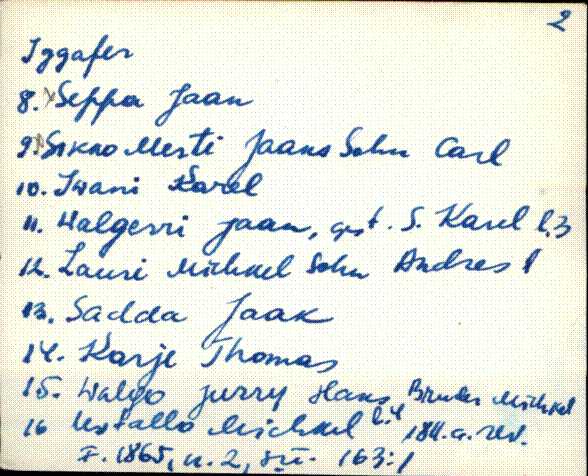 2
Iggafer
8. Seppa Jaan
9. Sikno Merti Jaans Sohn Carl
10. Iwani Karel
11. Walgerri Jaan, gest. S. Karel l. 3
12. Lauri Michkel Sohn Andres 1
13. Sadda Jaak
14. Karje Thomas
15. Walgo Jurry Hans, Bruder Michkel
16 Ustallo Michkel l. 4 1811. a. rev.
F. 1865, n. 2, sü. 163:1